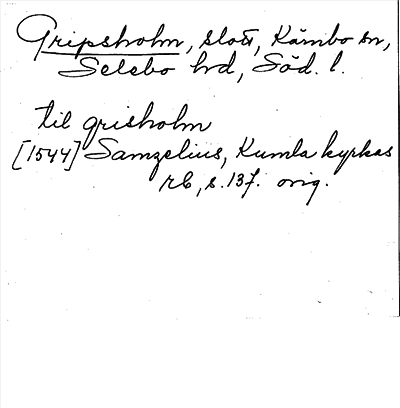 Gripsholm, slott, Kärnbo sn,
Selebo hd, Söd. l.
til grisholm
[1544] Samzelius, Kumla kyrkas
rb, s. 137. orig.